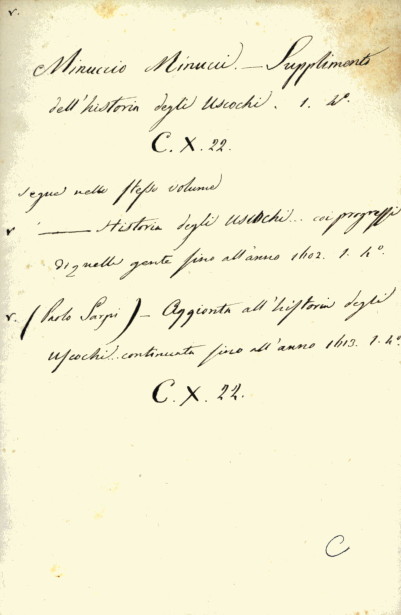 v.
Minuccio Minucii. — Supplimento
dell'historia degli Uscochi. 1. 4º.
C. X. 22.
segue nello stesso volume
v — Historia degli Uscochi... coi progressi
di quella gente sino all'anno 1602. 1. 4º.
v. (Paolo Sarpi) — Aggionta all'historia degli
Uscochi... continuata sino all'anno 1613. 1. 4º
C. X. 22.
C